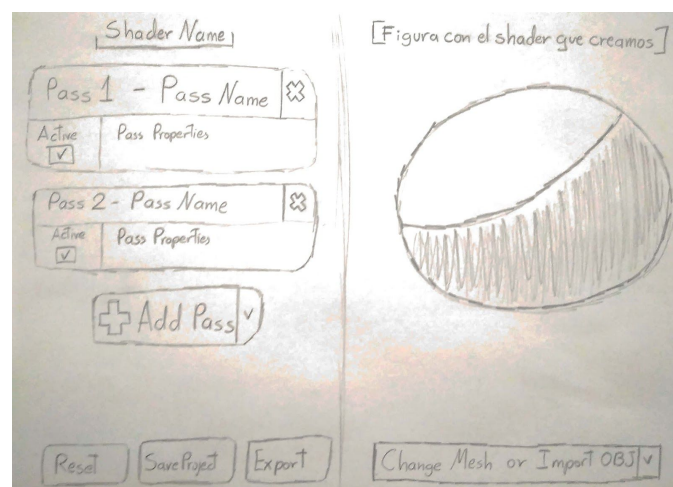 Shader Name
Pass 1 - Pass Name
Active
Pass Properties
Pass 2 - Pass Name
Active
Pass Properties
Add Pass
Reset
Save Project
Export
[Figura con el shader que creamos]
Change Mesh or Import OBJ